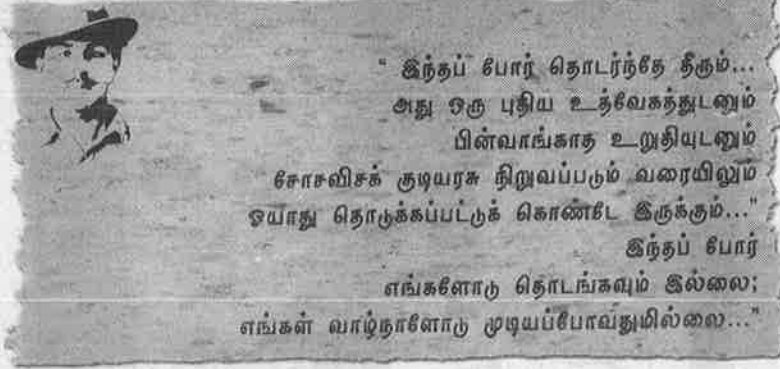 " இந்தப் போர் தொடர்ந்தே தீரும்...
அது ஒரு புதிய உத்வேகத்துடனும்
பின்வாங்காத உறுதியுடனும்
சோசலிசக் குடியரசு நிறுவப்படும் வரையிலும்
ஓயாது தொடுக்கப்பட்டுக் கொண்டே இருக்கும்..."
இந்தப் போர்
எங்களோடு தொடங்கவும் இல்லை;
எங்கள் வாழ்நாளோடு முடியப்போவதுமில்லை..."